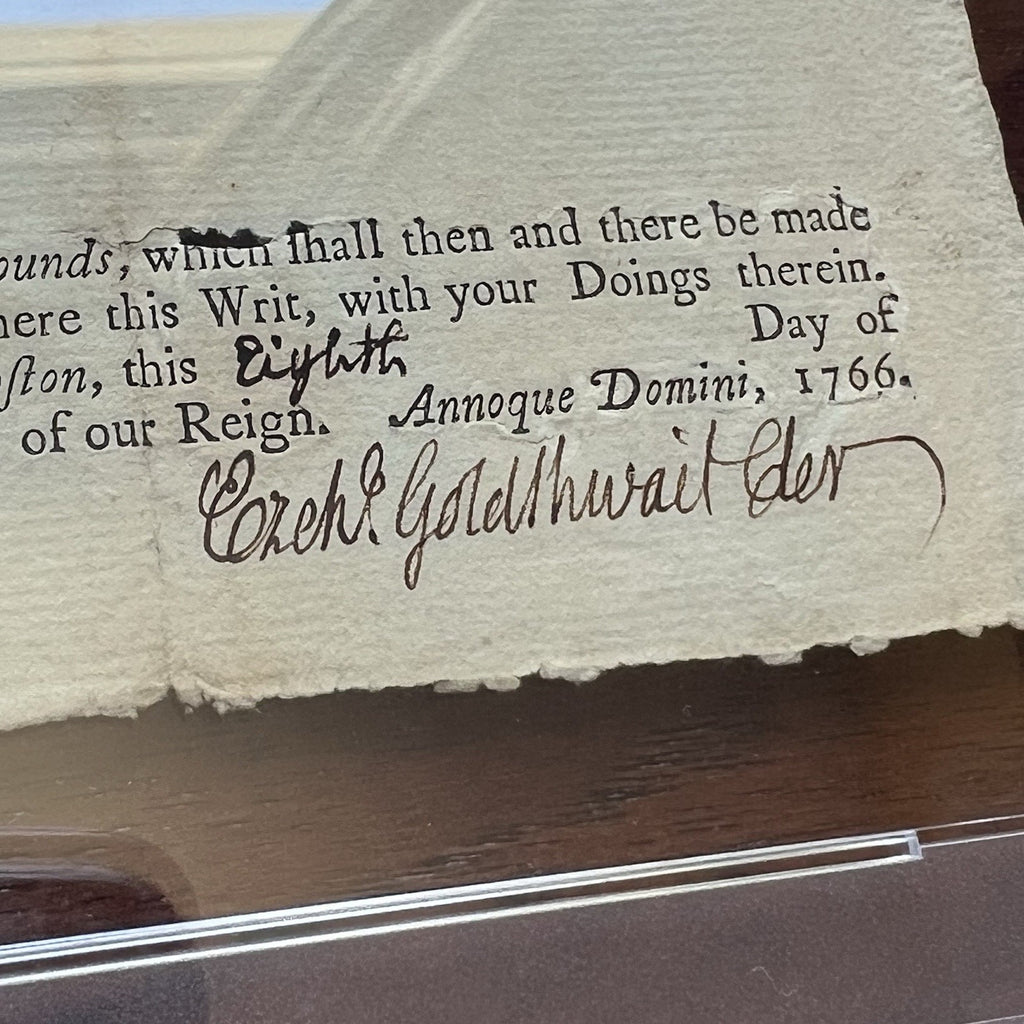 ounds, which ſhall then and there be made
here this Writ, with your Doings therein.
ſton, this Eighth Day of
of our Reign. Annoque Domini, 1766.
Ezekl. Goldthwait Cler